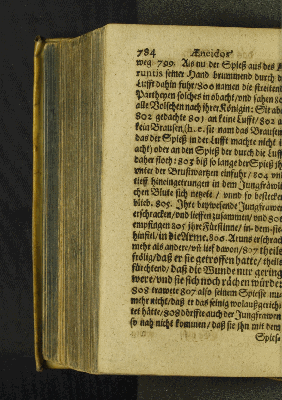 784 Æneidos
weg 799. Als nu der Spieß aus des
runtis seiner Hand brummend durch d
Lufft dahin fuhr/800 namen die streitend
Partheyen solches in obacht/und sahen
alle Volschen nach ihrer Königin: Sie ab
802 gedachte 801 an keine Lufft/802 a
kein Brausen/(h.e. sie nam das Brausen
das der Spieß in der Lufft machte nicht i
acht) oder an den Spieß der durch die Lufft
daher floh: 803 biß so lange der Spieß ih
unter der Brustwartzen einfuhr/804 un
tieff hineingetrungen in dem Jungfräwli
chen Blute sich und so bestecken
blieb. 805. Ihre beywesende Jungfrawen
erschracken/und lieffen zusammen/und 806
empfingen 805 ihre Fürstinne/in-dem-sie
hinfiel/in die Arme. 806. Aruns erschrack
mehr als andere/und lieff davon/807 theils
frölig/daß er sie getroffen hatte/theils
fürchtend/daß die Wunde nur gering
were/und sie sich noch rächen würde:
808 trawete 807 also seinem Spiesse nu
mehr nicht/daß er das seinig wol außgericht
tet hätte/808 dörffte auch der Jungfrawen
so nah nicht kommen/daß sie ihn mit dem
Spiese